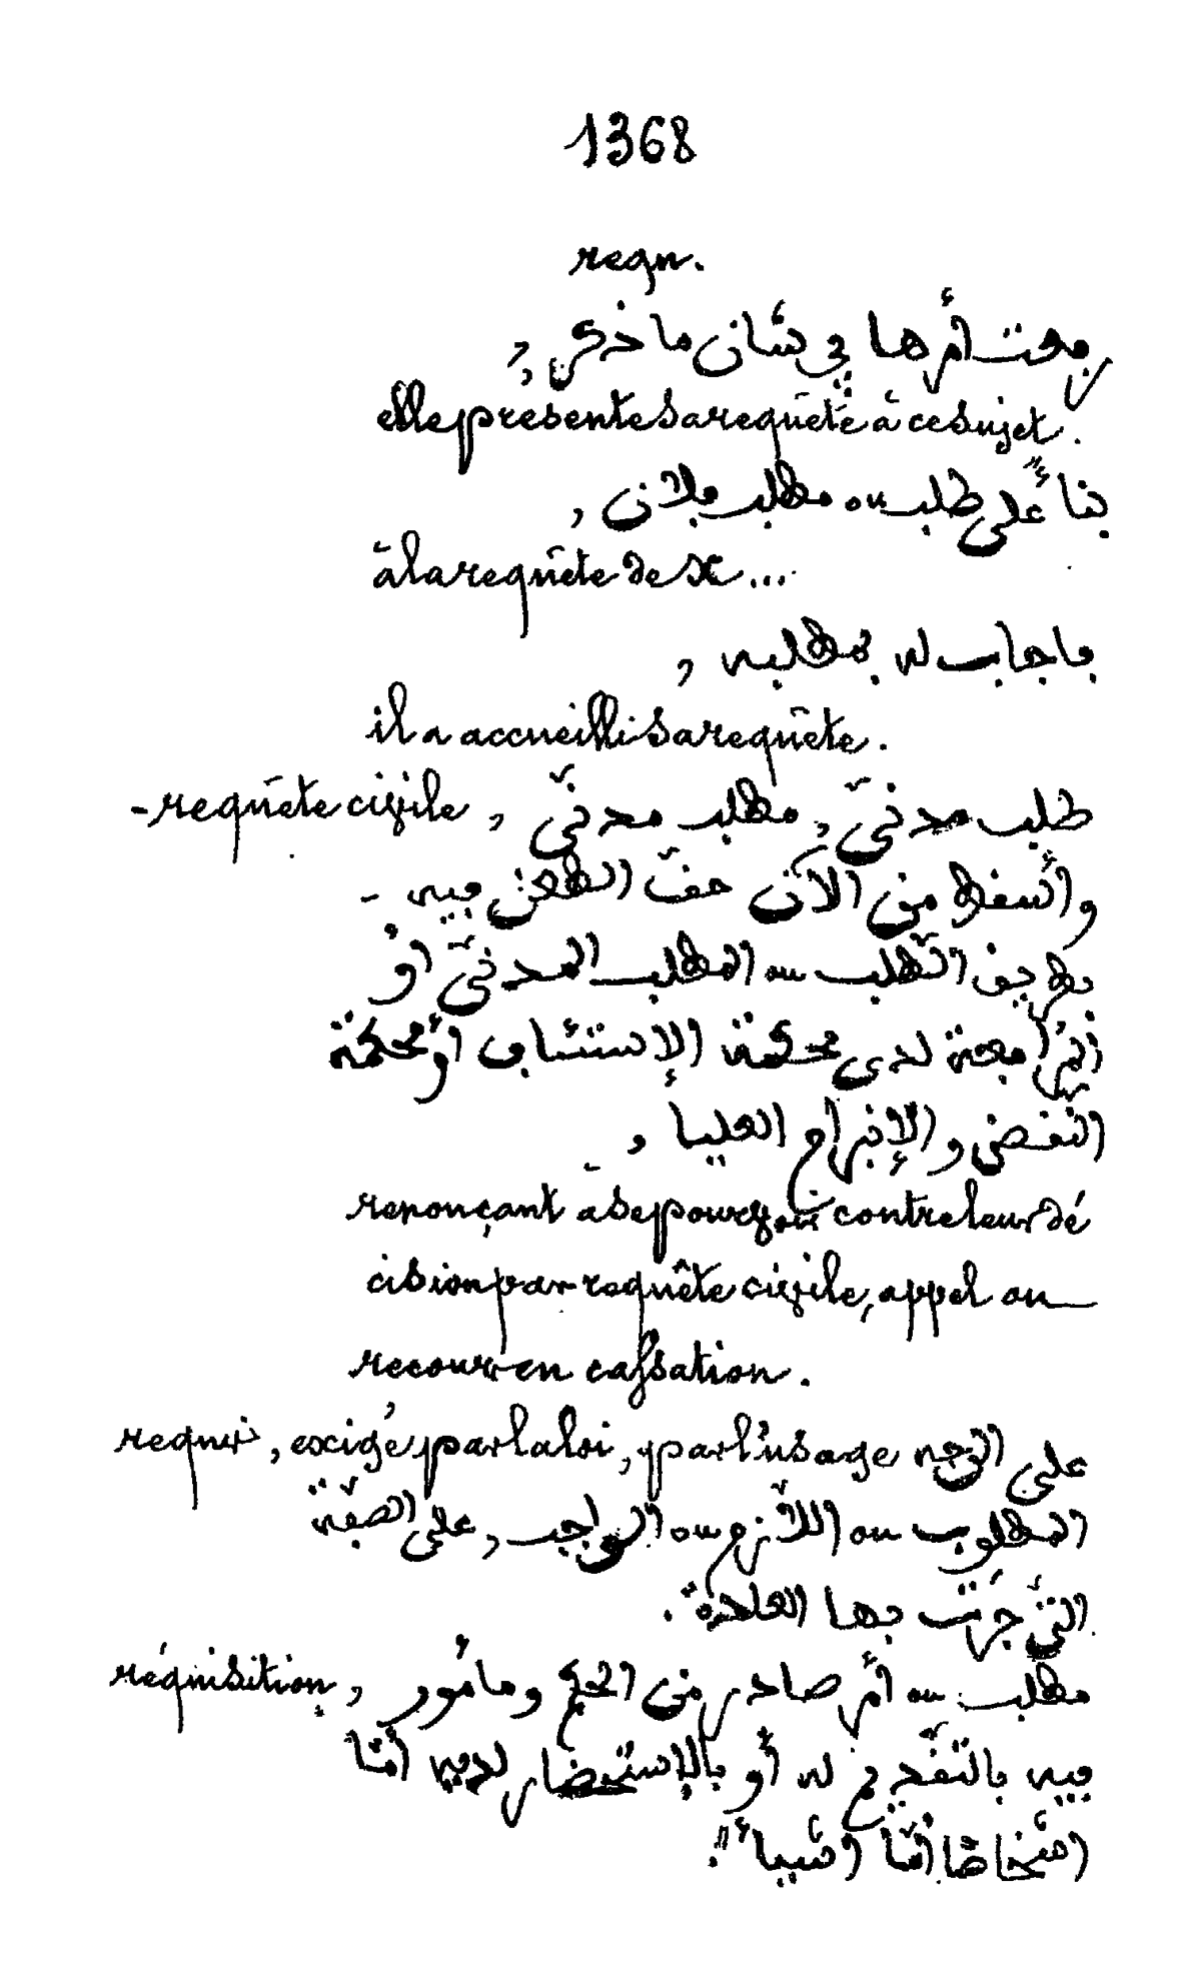 1368
requ.
رفعت أمرها في شأن ما ذكر,
elle présente sa requête à ce sujet.
بناءً على طلب ou مطلب فلان ,
à la requête de X ...
فاجاب له بمطلبه ,
il a accueilli sa requête.
طلب مدنيّ, مطلب مدنيّ , requête civile -
وأسقط من الآن حقّ الطعن فيه -
بطريق الطّلب ou المطلب المدنيّ اوْ
المرافعة لدى محكمة الإستئناف أو محكمة
النّقض والإبرام العليا ,
renonçant à se pourvoir contre leur dé
cision par requête civile, appel ou
recours en cassation.
requis, exigé par la loi, par l'usage على الوجه
المطلوب ou اللاّزم ou الواجب , على الصّفة
التي جرَت بها العادة.
réquisition , مطلب ou أمر صادر من الحكم ومأمُور
فيه بالتّقديم له أو بالإستحضار لديه أمّا
اشخاصًا أمّا اشياءً.